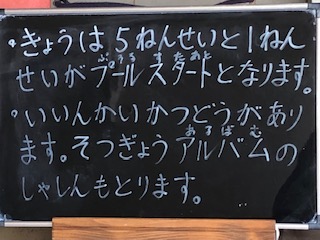 。きょうは5ねんせいと1ねん
せいがプールスタートとなります。
。いいんかいかつどうがあり
ます。そつぎょうアルバムの
しゃしんもとります。